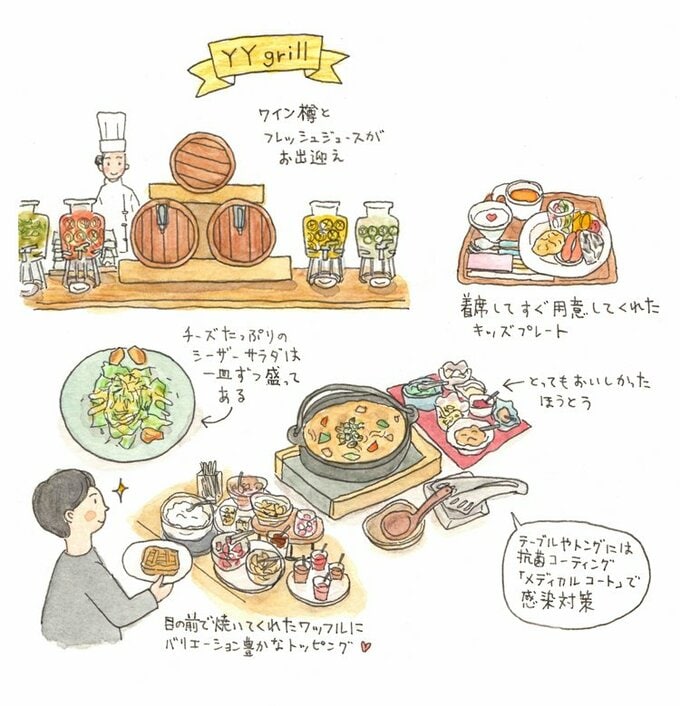 YY grill
ワイン樽と
フレッシュジュースが
お出迎え
着席してすぐ用意してくれた
キッズプレート
チーズたっぷりの
シーザーサラダは
一皿ずつ盛って
ある
とってもおいしかった
ほうとう
テーブルやトングには
抗菌コーティング
「メディカルコート」で
感染対策
目の前で焼いてくれたワッフルに
バリエーション豊かなトッピング♥